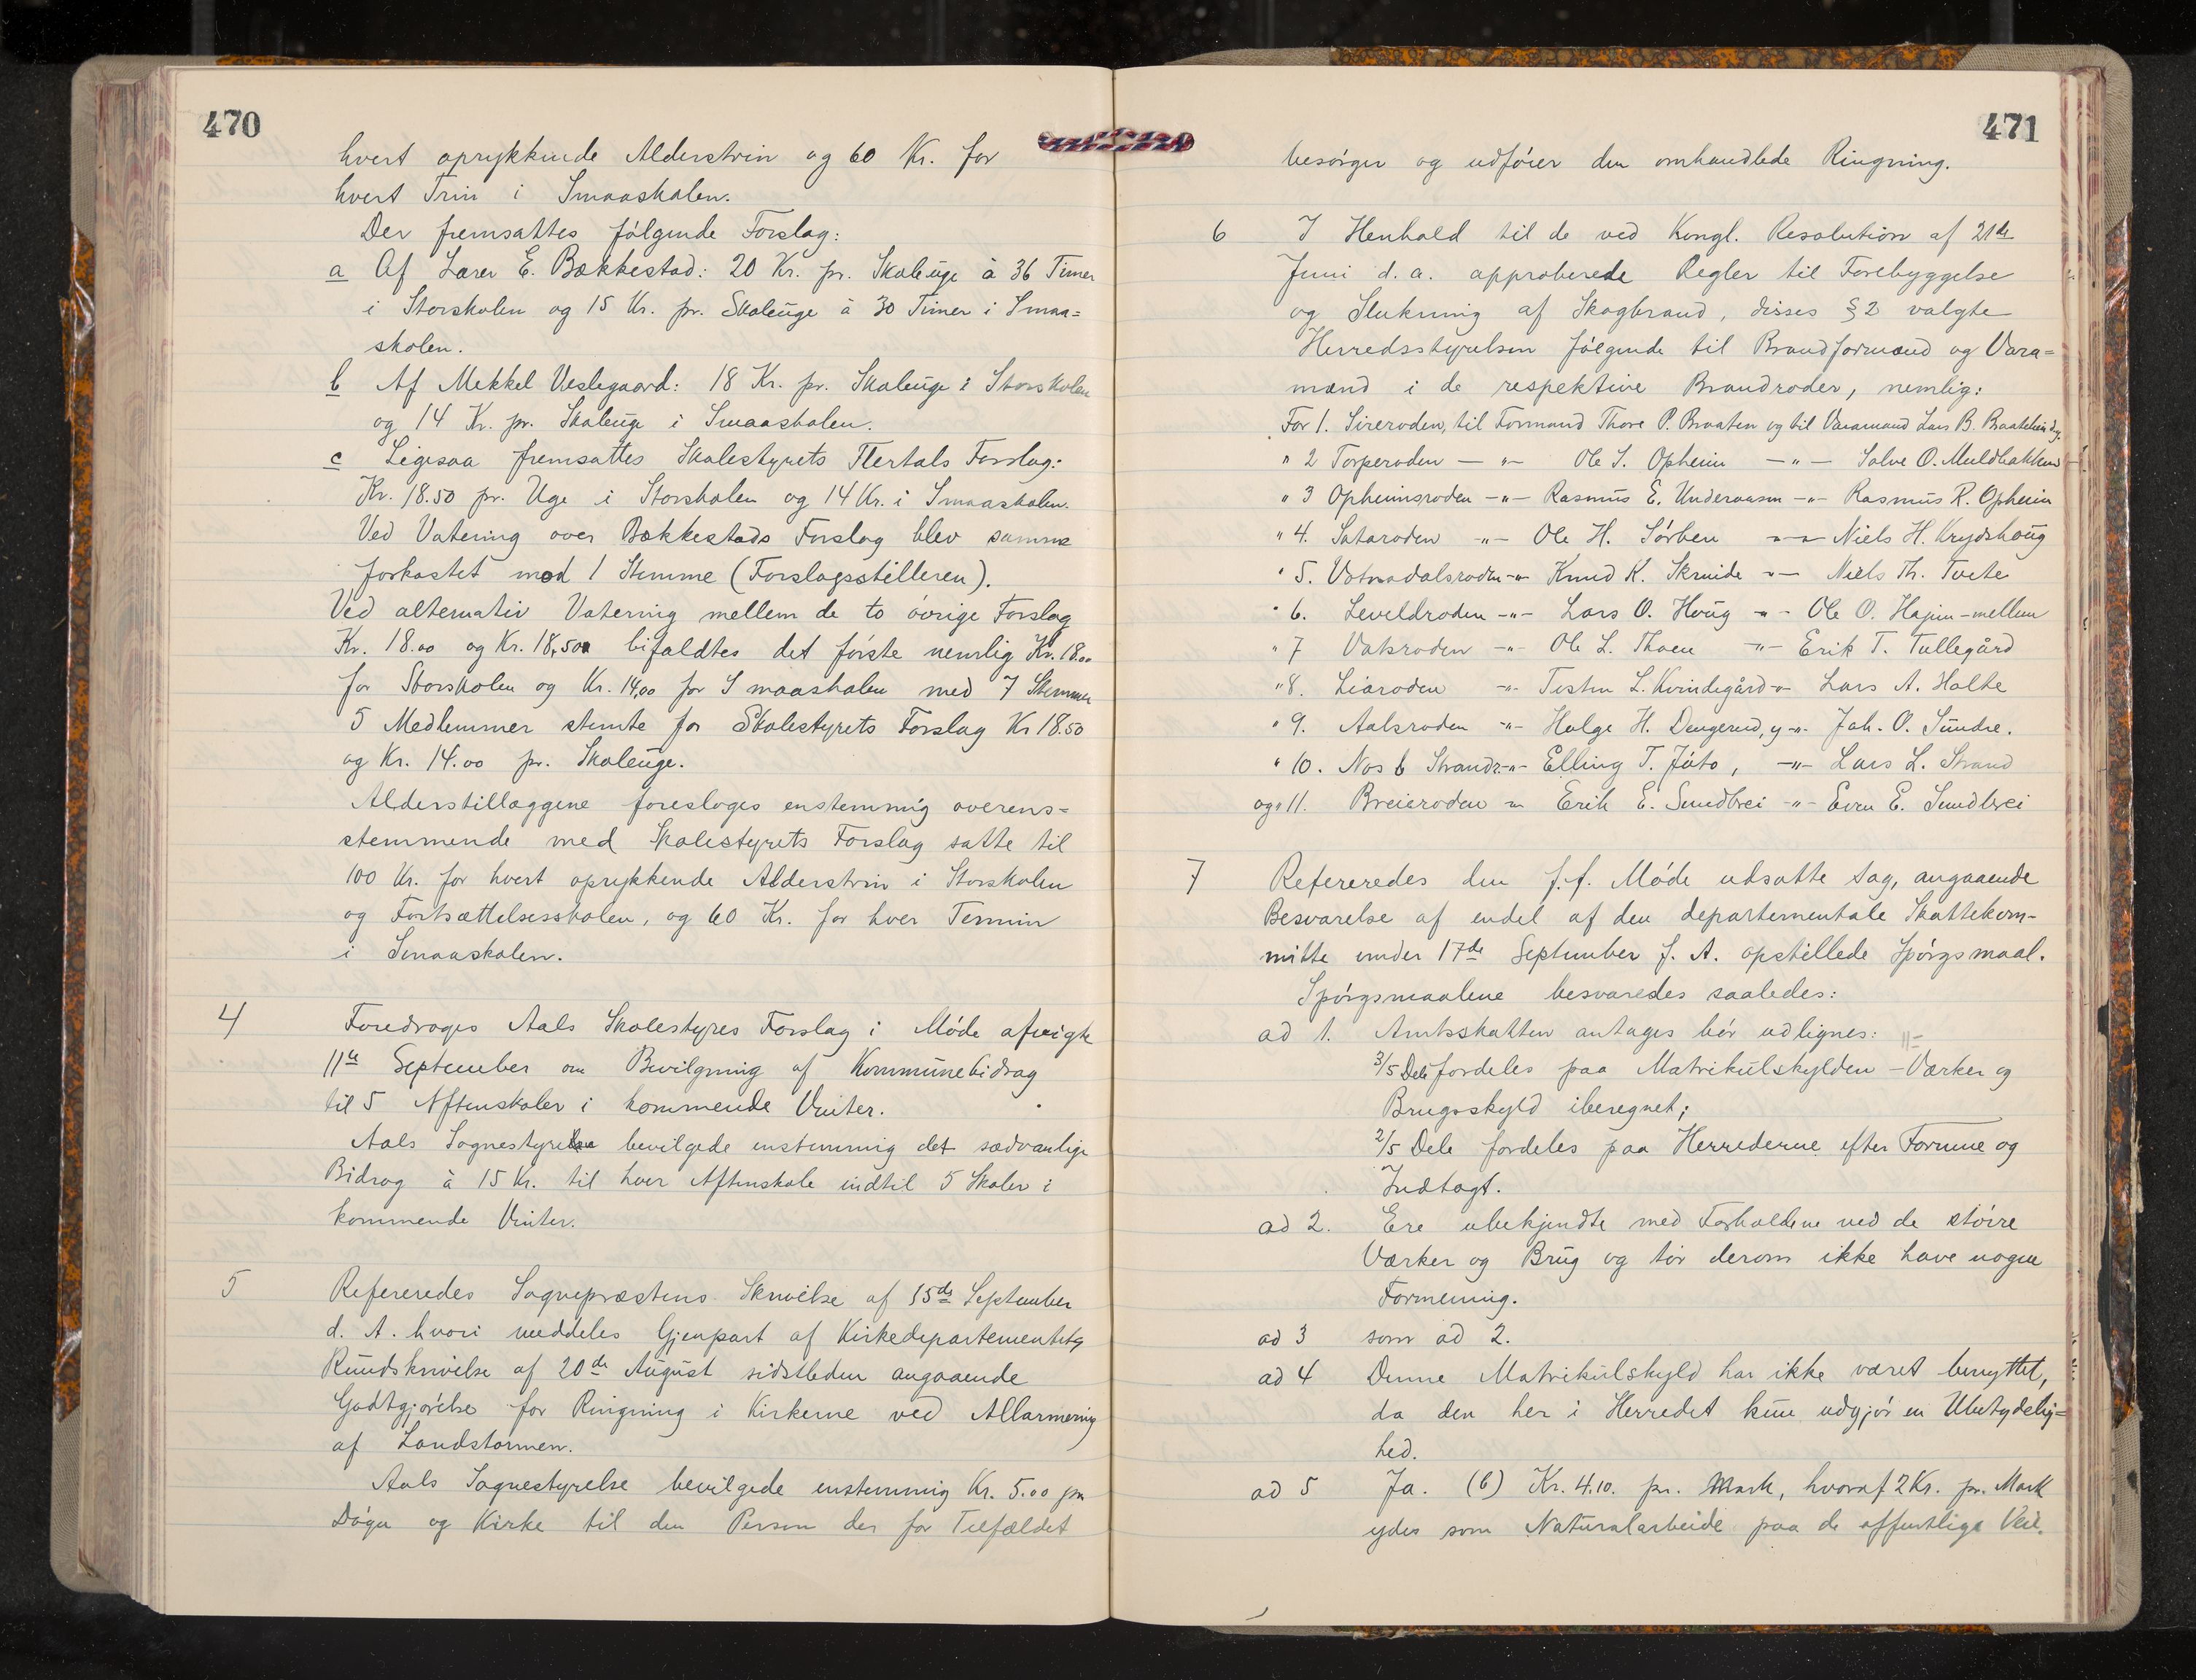 470
hvert oprykkende Alderstrin og 60 Kr. for
hvert Trin i Smaaskolen.
Der fremsattes følgende Forslag:
a Af Lærer E. Bækkestad: 20 Kr. pr. Skoleuge à 36 Timer
i Storskolen og 15 Kr. pr. Skoleuge à 30 Timer i Smaa=
skolen.
b Af Mekkel Veslegaard: 18 Kr. pr. Skoleuge i Storskolen
og 14 Kr. pr. Skoleuge i Smaaskolen.
c Ligesaa fremsattes Skolestyrets Flertals Forslag:
Kr. 18.50 pr. Uge i Storskolen og 14 Kr. i Smaaskolen.
Ved Votering over Bækkestads Forslag blev samme
forkastet mod 1 Stemme (Forslagsstilleren).
Ved alternativ Votering mellem de to øvrige Forslag
Kr. 18.00 og Kr. 18,50 bifaldtes det første nemlig Kr. 18.00
for Storskolen og Kr. 14,00 for Smaaskolen med 7 Stemmer
5 Medlemmer stemte for Skolestyrets Forslag Kr 18.50
og Kr. 14.00 pr. Skoleuge.
Alderstillæggene foresloges enstemmig overens=
stemmende med Skolestyrets Forslag satte til
100 Kr. for hvert oprykkende Alderstrin i Storskolen
og Fortsættelsesskolen, og 60 Kr. for hver Termin
i Smaaskolen.
4 Foredroges Aals Skolestyres Forslag i Møde afvigte
11te September om Bevilgning af Kommunebidrag
til 5 Aftenskoler i kommende Vinter.
Aals Sognestyrelse bevilgede enstemmig det sædvanlige
Bidrag à 15 Kr. til hver Aftenskole indtil 5 Skoler i
kommende Vinter.
5 Refereredes Sognepræstens Skrivelse af 15de September
d. A. hvori meddeles Gjenpart af Kirkedepartementets
Rundskrivelse af 20de August sidstleden angaaende
Godtgjørelse for Ringning i Kirkerne ved Allarmering
af Landstormen.
Aals Sognestyrelse bevilgede enstemmig Kr. 5.00 pr
Døgn og Kirke til den Person der for Tilfældet
471
besørger og udfører den omhandlede Ringning.
6 I Henhold til de ved Kongl. Resolution af 21de
Juni d. a. approberede Regler til Forebyggelse
og Slukning af Skogbrand, disses § 2 valgte
Herredsstyrelsen følgende til Brandformænd og Vara=
mænd i de respektive Brandroder, nemlig:
For 1. Sireroden, til Formand Thore P. Braaten og til Varamand Lars B.
" 2 Torperoden — " — Ole S. Opheim — " — Solve O. Muldbakken
" 3 Opheimsroden — " — Rasmus E. — " — Rasmus R. Opheim
" 4. Sataroden — " — Ole H. Sørben — " — Niels H. Krydshoug
" 5. Votnadalsroden — " — Knud K. Skruide — " — Niels Th. Tveto
" 6. Leveldroden — " — Lars O. Houg — " — Ole O. -mellem
" 7 Vatsroden — " — Ole L. Thoen — " — Erik T. Tullegård
" 8. Liaroden — " — L. Kvindegård — " — Lars A. Holte
" 9. Aalsroden — " — Holge H. Dengerud, y — " — Joh. O. Sundre.
" 10. Nos & Strandr. — " — Elling T. Jøto, — " — Lars L. Strand
og " 11. Breieroden — " — Erik E. Sundbrei — " — Even E. Sundbrei
7 Refereredes den f. f. Møde udsatte Sag, angaaende
Besvarelse af endel af den departementale Skattekom-
mitte under 17de September f. A. opstillede Spørgsmaal.
Spørgsmaalene besvaredes saaledes:
ad 1. Amtsskatten antages bør udlignes:
3/5 Dele fordeles paa Matrikulskylden - Værker og
Brugsskyld iberegnet;
2/5 Dele fordeles paa Herrederne efter Formue og
Indtægt.
ad 2. Ere ubekjendte med Forholdene ved de større
Værker og Brug og tør derom ikke have nogen
Formening.
ad 3 som ad 2.
ad 4 Denne Matrikulskyld har ikke været benyttet,
da den her i Herredet kun udgjør en Ubetydelig=
hed.
ad 5 Ja. (6) Kr. 4.10. pr. Mark, hvoraf 2 Kr. pr. Mark
ydes som Naturalarbeide paa de offentlige Veie.